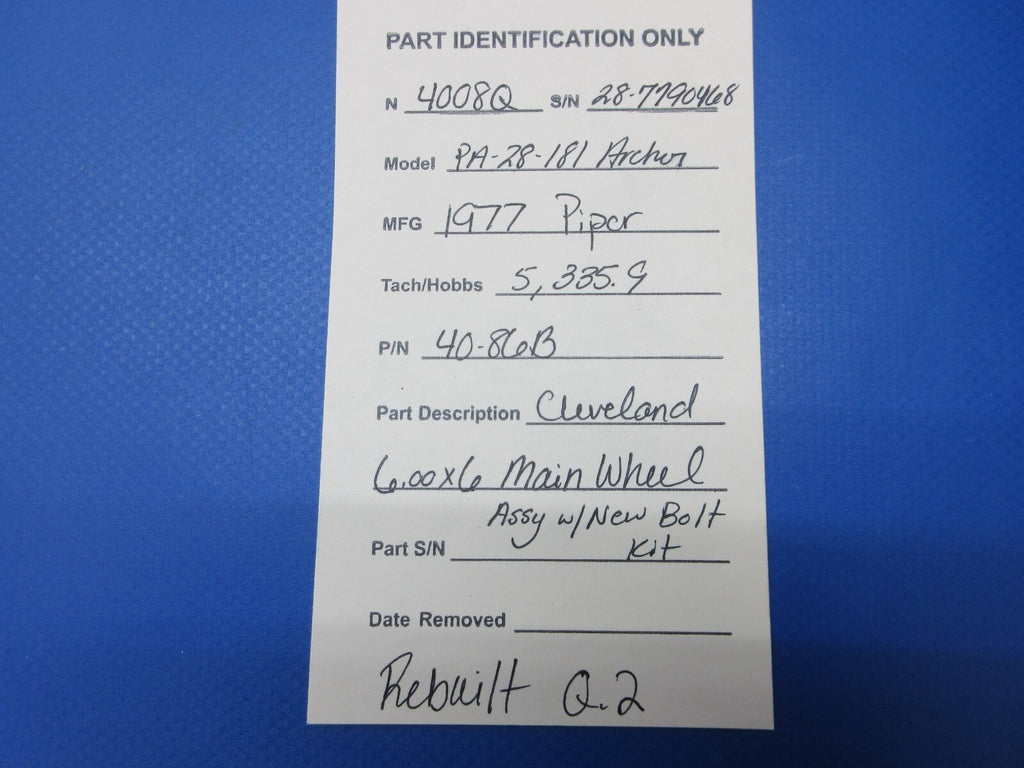 PART IDENTIFICATION ONLY
N 4008Q S/N 28-7790468
Model PA-28-181 Archer
MFG 1977 Piper
Tach/Hobbs 5,335.9
P/N 40-86B
Part Description Cleveland
6.00x6 Main Wheel
Assy w/New Bolt
Part S/N Kit
Date Removed
Rebuilt Q.2